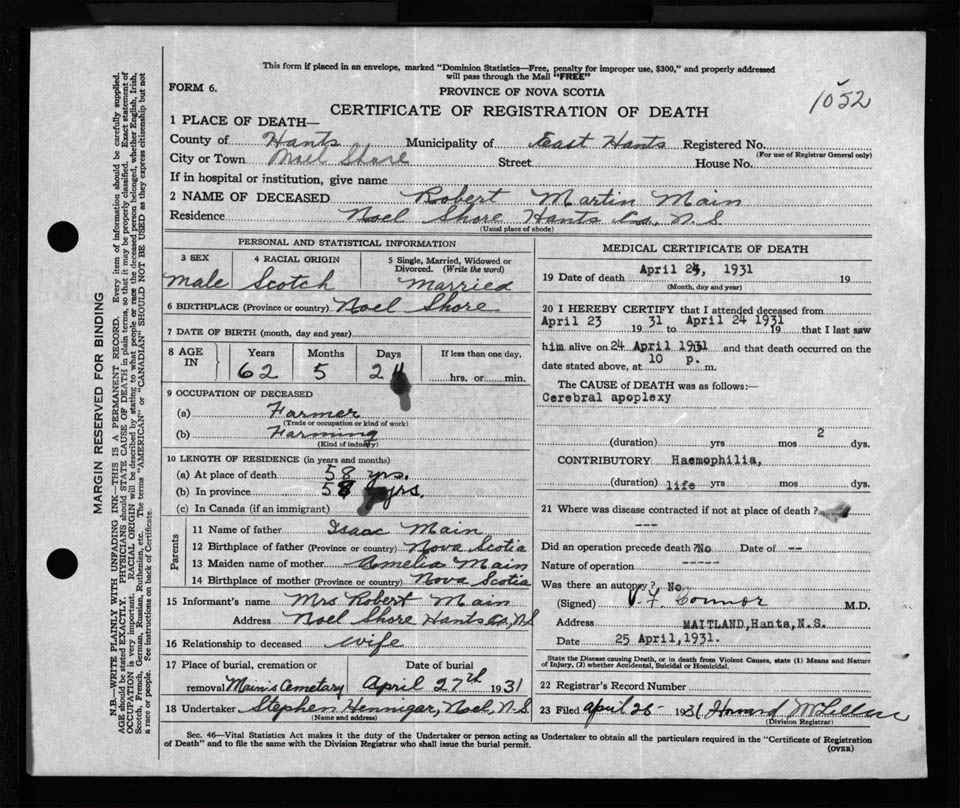 This form if placed in an envelope, marked "Dominion Statistics—Free, penalty for improper use, $300," and properly addressed
will pass through the Mail "FREE"
FORM 6.
PROVINCE OF NOVA SCOTIA
1052
CERTIFICATE OF REGISTRATION OF DEATH
1 PLACE OF DEATH—
County of Hants Municipality of East Hants Registered No.
(For use of Registrar General only)
City or Town Noel Shore Street House No.
If in hospital or institution, give name
2 NAME OF DECEASED Robert Martin Main
Residence Noel Shore Hants Co., N.S.
(Usual place of abode)
PERSONAL AND STATISTICAL INFORMATION
3 SEX 4 RACIAL ORIGIN 5 Single, Married, Widowed or
Divorced. (Write the word)
Male Scotch Married
6 BIRTHPLACE (Province or country) Noel Shore
7 DATE OF BIRTH (month, day and year)
8 AGE IN Years Months Days If less than one day,
62 5 24 hrs. or min.
9 OCCUPATION OF DECEASED
(a) Farmer
(Trade or occupation or kind of work)
(b) Farming
(Kind of industry)
10 LENGTH OF RESIDENCE (in years and months)
(a) At place of death 58 yrs.
(b) In province 58 yrs.
(c) In Canada (if an immigrant)
Parents
11 Name of father Isaac Main
12 Birthplace of father (Province or country) Nova Scotia
13 Maiden name of mother Amelia Main
14 Birthplace of mother (Province or country) Nova Scotia
15 Informant's name Mrs Robert Main
Address Noel Shore Hants Co., N.S
16 Relationship to deceased wife
17 Place of burial, cremation or Date of burial
removal Main's Cemetary April 27th 1931
18 Undertaker Stephen Hennigar, Noel, N.S
(Name and address)
MEDICAL CERTIFICATE OF DEATH
19 Date of death April 24, 1931 19
(Month, day and year)
20 I HEREBY CERTIFY that I attended deceased from
April 23 1931 to April 24 1931 19 that I last saw
him alive on 24 April 1931 and that death occurred on the
date stated above, at 10 p. m.
The CAUSE of DEATH was as follows:—
Cerebral apoplexy
(duration) yrs mos 2 dys.
CONTRIBUTORY Haemophilia,
(duration) life yrs mos dys.
21 Where was disease contracted if not at place of death?
---
Did an operation precede death? No Date of --
Nature of operation -----
Was there an autopsy? No.
(Signed) Connor M.D.
Address MAITLAND, Hants, N.S.
Date 25 April, 1931.
State the Disease causing Death, or in death from Violent Causes, state (1) Means and Nature
of Injury, (2) whether Accidental, Suicidal or Homicidal.
22 Registrar's Record Number
23 Filed April 25 1931 Howard McLellan
(Division Registrar)
Sec. 46—Vital Statistics Act makes it the duty of the Undertaker or person acting as Undertaker to obtain all the particulars required in the "Certificate of Registration
of Death" and to file the same with the Division Registrar who shall issue the burial permit.
(OVER)
MARGIN RESERVED FOR BINDING
N.B.—WRITE PLAINLY WITH UNFADING INK—THIS IS A PERMANENT RECORD. Every item of information should be carefully supplied.
AGE should be stated EXACTLY. PHYSICIANS should STATE CAUSE OF DEATH in plain terms, so that it may be properly classified. Exact statement of
OCCUPATION is very important. RACIAL ORIGIN will be described by stating to what people or race the deceased person belonged, whether English, Irish,
Scotch, French, German, Russian, Ruthenian, etc. The terms "AMERICAN" or "CANADIAN" SHOULD NOT BE USED as they express citizenship but not
a race or people. See instructions on back of Certificate.